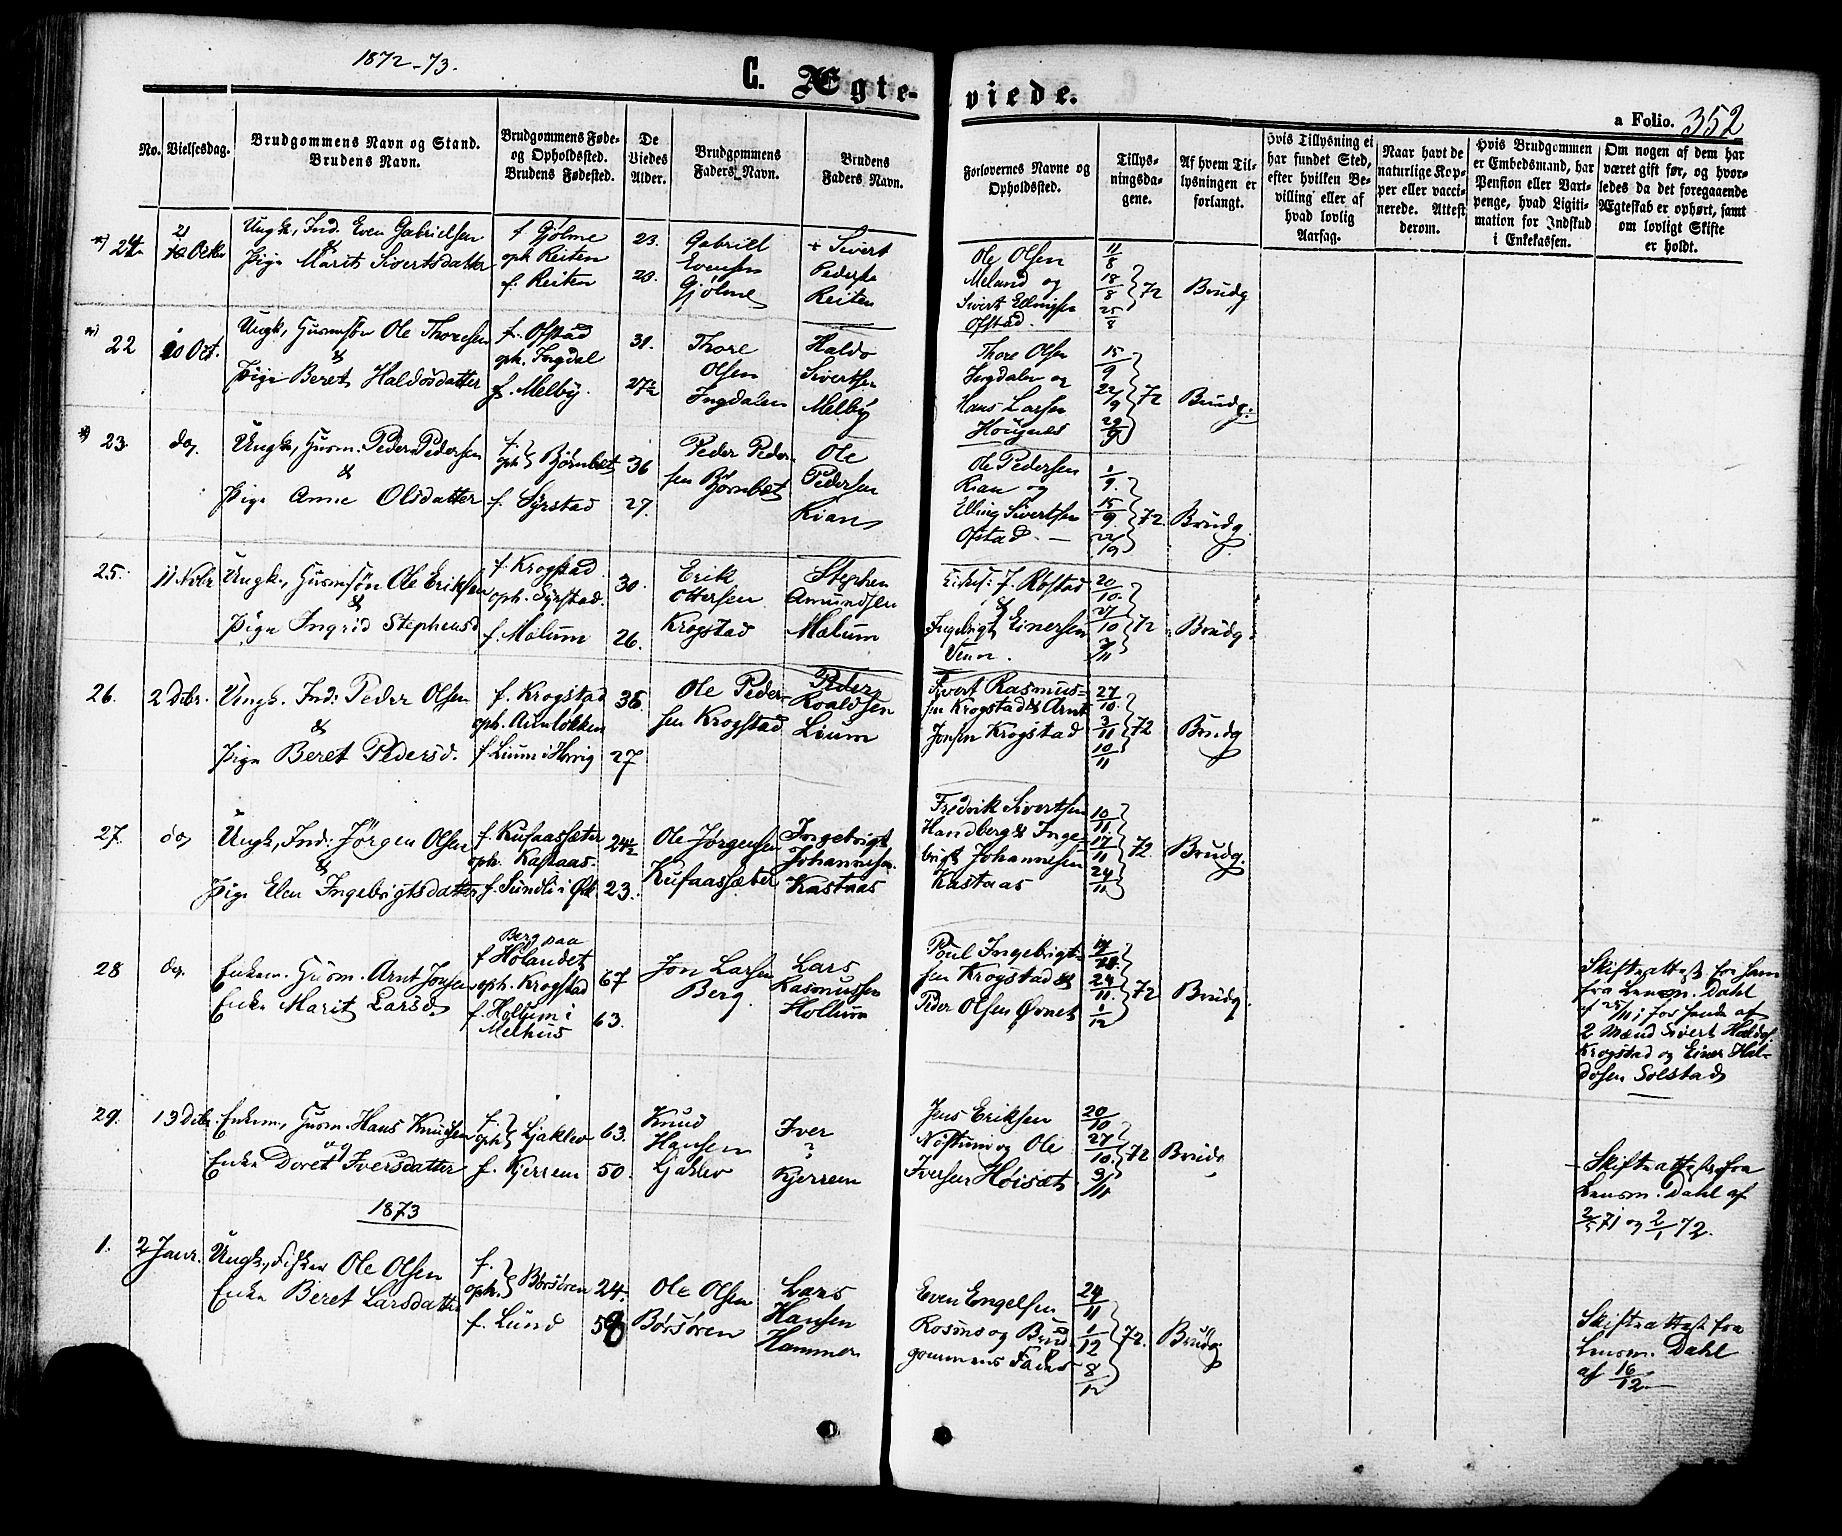 1872-73.
C. Ægte-viede.
a Folio. 352
No.
Vielsesdag.
Brudgommens Navn og Stand.
Brudens Navn.
Brudgommens Føde-
og Opholdssted.
Brudens Fødested.
De
Viedes
Alder.
Brudgommens
Faders Navn.
Brudens
Faders Navn.
Forlovernes Navne og
Opholdssted.
Tillys-
ningsda-
gene.
Af hvem Til-
lysningen er
forlangt.
Hvis Tillysning ei
har fundet Sted,
efter hvilken Be-
villing eller af
hvad lovlig
Aarsag.
Naar havt de
naturlige Kop-
per eller vacci-
nerede. Attest
derom.
Hvis Brudgommen
er Embedsmand, har
Pension eller Vart-
penge, hvad Ligiti-
mation for Indskud
i Enkekassen.
Om nogen af dem har
været gift før, og hvor-
ledes da det foregaaende
Ægteskab er ophørt, samt
om lovligt Skifte
er holdt.
24 21 Octbr Ungk., Ind. Even Gabrielsen & Pige Marit Sivertsdatter
f Gjølme oph Reiten f. Reiten
23. 23.
Gabriel Evensen Gjølme
+ Sivert Peders Reiten
Ole Olsen Meland og Sivert Ellingsen Ofstad.
11/8 18/8 25/8 } 72 Brudg
22 10 Oct. Ungk., Gusmsøn Ole Thoresen & Pige Beret Haldosdatter
f. Ofstad oph. Ingdal f. Melby.
31. 27½
Thore Olsen Ingdalen
Haldo Sivertsen Melby
Thore Olsen Ingdalen og Hans Larsen Hougnes
15/9 22/9 29/9 } 72 Brudg.
23. do. Ungk., Gusm. Peder Pedersen & Pige Anne Olsdatter
f. oph } Bjørnbet f. Syrstad
36 27.
Peder Peder-sen Bjørnbet
Ole Pedersen Rian
Ole Pedersen Rian og Elling Sivertsen Ofstad. —
1/9. 15/9 22/9 } 72. Brudg
25. 11 Nvbr Ungk., Gusmsøn Ole Eriksen & Pige Ingrid Stephensd
f. Krogstad oph. Syrstad. f. Malum
30. 26.
Erik Ottersen Krogstad
Stephen Amundsen Malum
J. Rostad & Ingebrigt Einersen Veun.
20/10. 27/10 3/11 } 72 Brudg
26. 2 Dcbr. Ungk. Ind: Peder Olsen & Pige Beret Pedersd.
f. Krogstad oph. Aunløkken f Lium i Horrig
36. 27
Ole Peder-sen Krogstad
Peder Roaldsen Lium
Sivert Rasmus-sen Krogstad & Arnt Jonsen Krogstad
27/10. 3/11 10/11 } 72 Brudg
27. do Ungk, Ind: Jörgen Olsen & Pige Elen Ingebrigtsdatter
f. Kufaassæter oph. Kastaas- f. Sundli i Ørk
24½ 23.
Ole Jørgensen Kufaassæter
Ingebrigt Johannesen Kastaas
Fredrik Sivertsen Handberg & Inge-brigt Johannesen Kastaas
10/11. 17/11 24/11 } 72. Brudg.
28 do. Enkem. Gusm. Arnt Jonsen Enke Marit Larsd.
Berg paa f Hølandet oph. Krogstad f. Hollum i Melhus
67 63.
Jon Larsen Berg.
Lars Rasmussen Hollum
Poul Ingebrigt-sen Krogstad & Peder Olsen Øvnet
24/11. 1/12 } 72 Brudg.
Skifteattest fra ham
fra Lensm. Dahl
af 25/11 for hende af
2 Mænd Sivert Haldos.
Krogstad og Einer Hal-
dosen Solstad
29. 13 Dcbr. Enkem, Gusm. Hans Knudsen og Enke Doret Iversdatter
f. oph } Ljaklev f. Kjerrem
63. 50.
Knud Hansen Ljaklev
Iver ? Kjerrem
Jens Eriksen Nøstum og Ole Iversen Høisæt
20/10 27/10. 3/11 } 72 Brudg
- Skifteattest fra
Lensm. Dahl af
71 og 2/1 72.
1873
1. 2 Janr. Ungk., Fisker Ole Olsen Enke Beret Larsdatter
f. oph. } Børsøren f. Lund
24. 58
Ole Olsen Børsøren
Lars Hansen Hammer
Even Engelsen Rosmo og Brud-gommens Fader
24/11 1/12 8/12 } 72. Brudg
Skifteattest fra
Lensm. Dahl
af 16/12